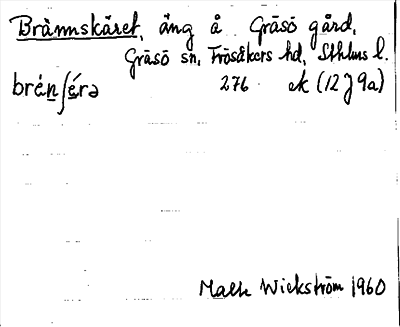 Brännskäret, äng å Gräsö gård,
Gräsö sn, Frösåkers hd, Sthlms l.
brénʃérə 276 ek (12J9a)
Malte Wickström 1960